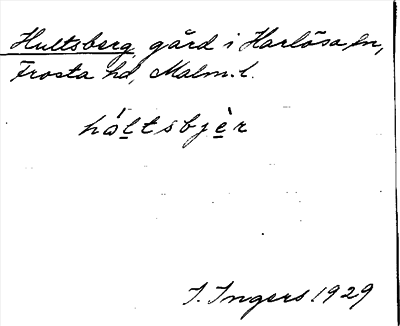 Hultsberg, gård i Harlösa sn,
Frosta hd, Malm. l.
hóltsbjèr
I. Ingers 1929